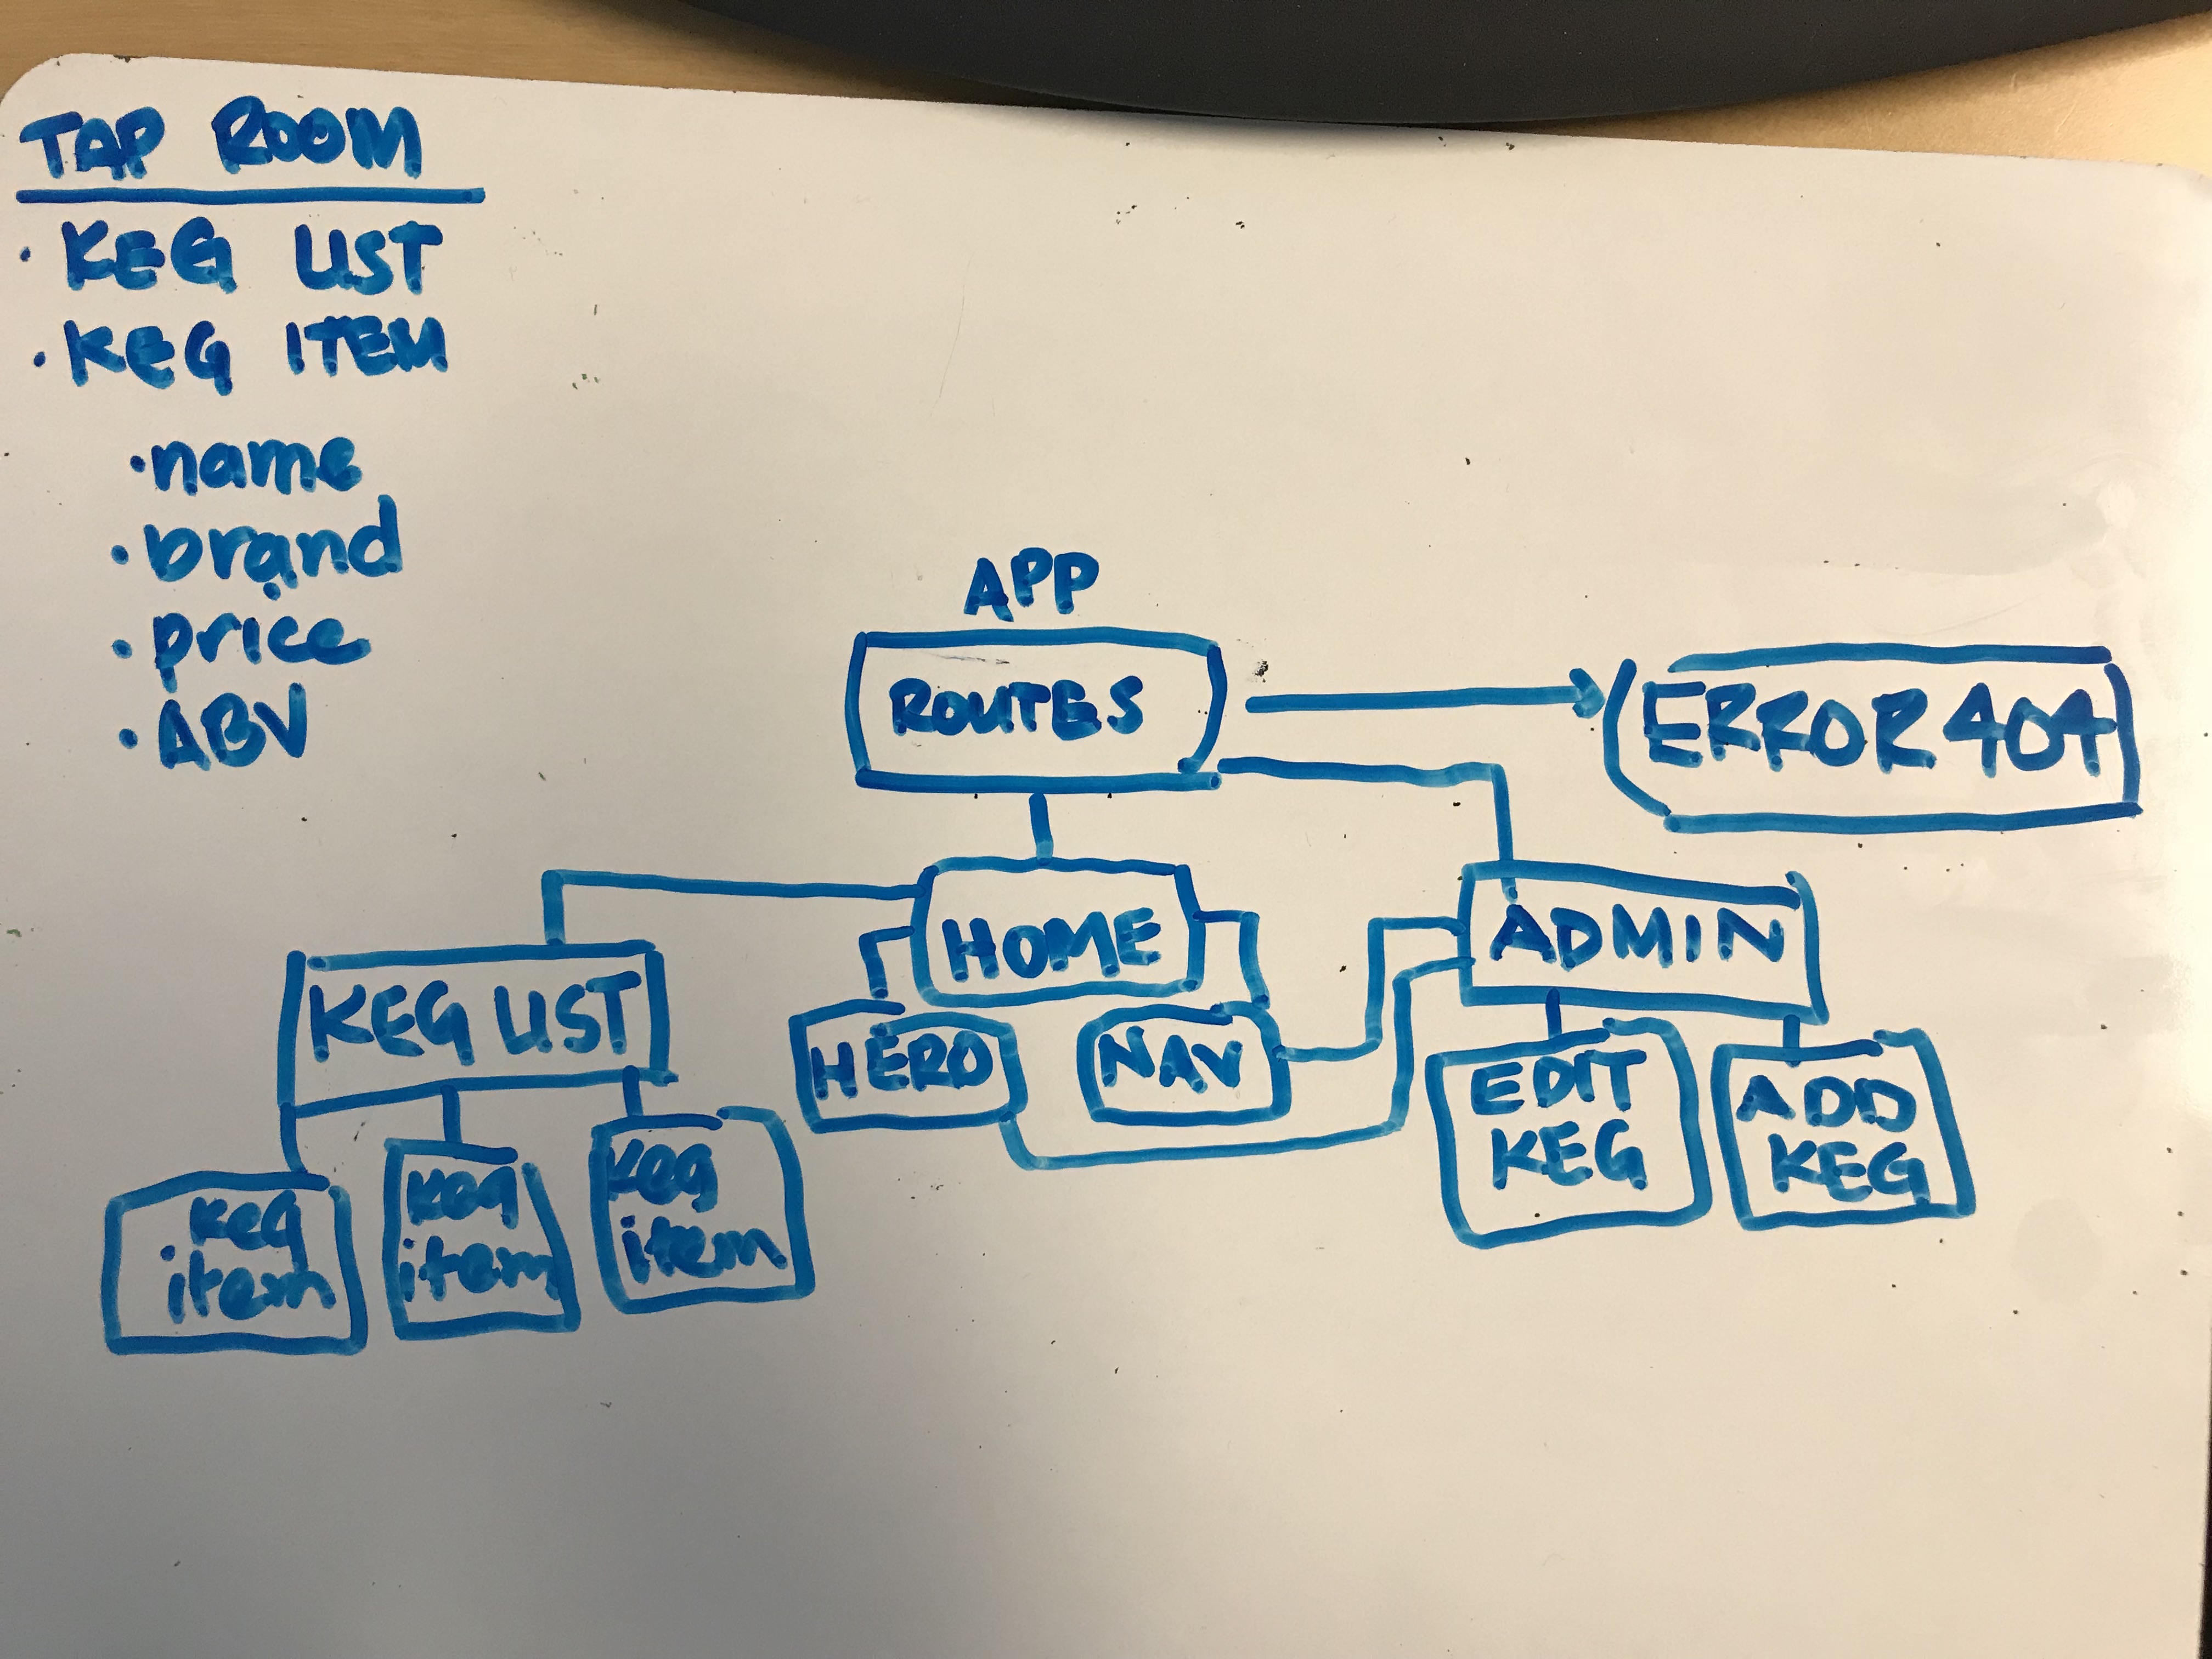 TAP ROOM
· KEG LIST
· KEG ITEM
· name
· brand
· price
· ABV
APP
ROUTES
ERROR 404
HOME
ADMIN
KEG LIST
HERO
NAV
EDIT
KEG
ADD
KEG
keg
item
keg
item
keg
item